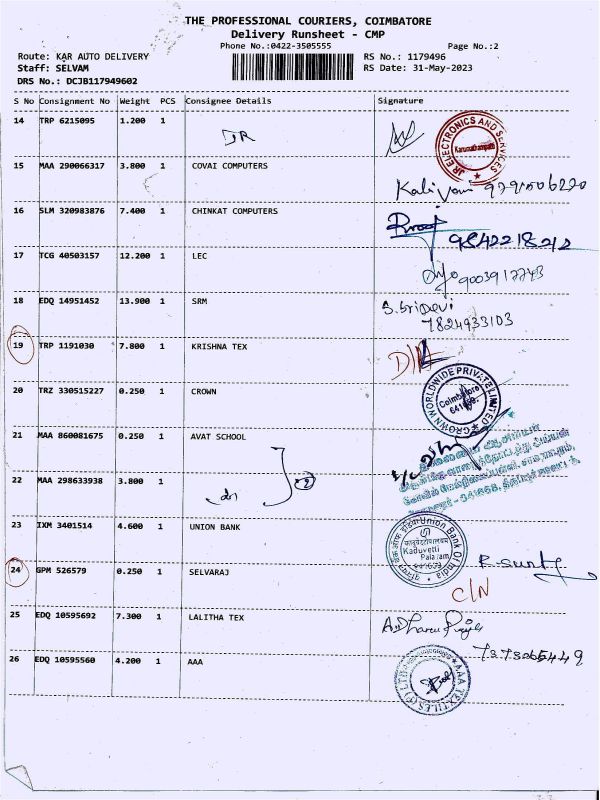 THE PROFESSIONAL COURIERS, COIMBATORE
Delivery Runsheet - CMP
Phone No.:0422-3505555 Page No.:2
Route: KAR AUTO DELIVERY RS No.: 1179496
Staff: SELVAM RS Date: 31-May-2023
DRS No.: DCJB117949602
S No Consignment No Weight PCS Consignee Details Signature
14 TRP 6215095 1.200 1 JR
JR ELECTRONICS AND SERVICES
Karumathampatti
15 MAA 290066317 3.800 1 COVAI COMPUTERS
16 SLM 320983876 7.400 1 CHINKAT COMPUTERS
9842218212
17 TCG 40503157 12.200 1 LEC
9003917743
18 EDQ 14951452 13.900 1 SRM
S.Sri Devi
7824933103
19 TRP 1191030 7.800 1 KRISHNA TEX
20 TRZ 330515227 0.250 1 CROWN
CROWN WORLDWIDE PRIVATE LIMITED
Coimbatore
21 MAA 860081675 0.250 1 AVAT SCHOOL
22 MAA 298633938 3.800 1
23 IXM 3401514 4.600 1 UNION BANK
Union Bank Of India
Kaduvetti
Palayam
24 GPM 526579 0.250 1 SELVARAJ
C/N
25 EDQ 10595692 7.300 1 LALITHA TEX
7373265449
26 EDQ 10595560 4.200 1 AAA
AAA TEXTILES (P) LTD